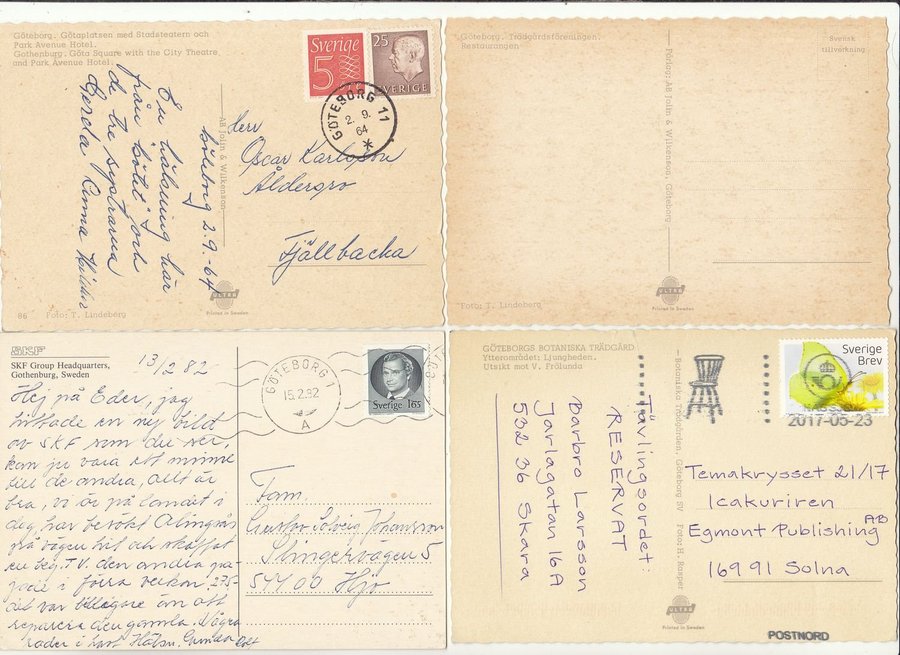 Göteborg. Götaplatsen med Stadsteatern och
Park Avenue Hotel.
Gothenburg. Göta Square with the City Theatre
and Park Avenue Hotel.
Göteborg 2.9.-64
En hälsning här
från "bötet" och
de tre systrarna
Gerda Anna
AB Jolin & Wilkenson
Sverige
5
25
SVERIGE
GÖTEBORG 11
2. 9.
64
Herr
Oscar Karlsson
Åldergro
Fjällbacka
ULTRA
Printed in Sweden
86 Foto: T. Lindeberg
Göteborg. Trädgårdsföreningen.
Restaurangen
Svensk
tillverkning
Förlag: AB Jolin & Wilkenson, Göteborg
ULTRA
Printed in Sweden
Foto: T. Lindeberg
SKF
SKF Group Headquarters,
Gothenburg, Sweden
13/2 82
Hej på Eder, jag
hittade en ny bild
av SKF som du ser,
kan ju vara ett minne
till de andra, allt är
bra, vi är på landet i
dag har besökt Alingsås
på vägen hit och skaffat
en beg. T.V. den andra pa-
jade i förra veckan. 275-
det var billigare än att
reparera den gamla. Några
rader i hast Hälsn. Gunilla
GÖTEBORG 1
15.2.82
A
Sverige 165
Fam.
Gustav Solveig Johansson
Slingervägen 5
544 00 Hjo
GÖTEBORGS BOTANISKA TRÄDGÅRD
Ytterområdet; Ljungheden.
Utsikt mot V. Frölunda
Tävlingsordet:
RESERVAT
Barbro Larsson
Jarlagatan 16A
532 36 Skara
Botaniska Trädgården, Göteborg SV Foto: H. Rasper
Sverige
Brev
2017-05-23
Temakrysset 21/17
Icakuriren
Egmont Publishing AB
169 91 Solna
ULTRA
Printed in Sweden
POSTNORD